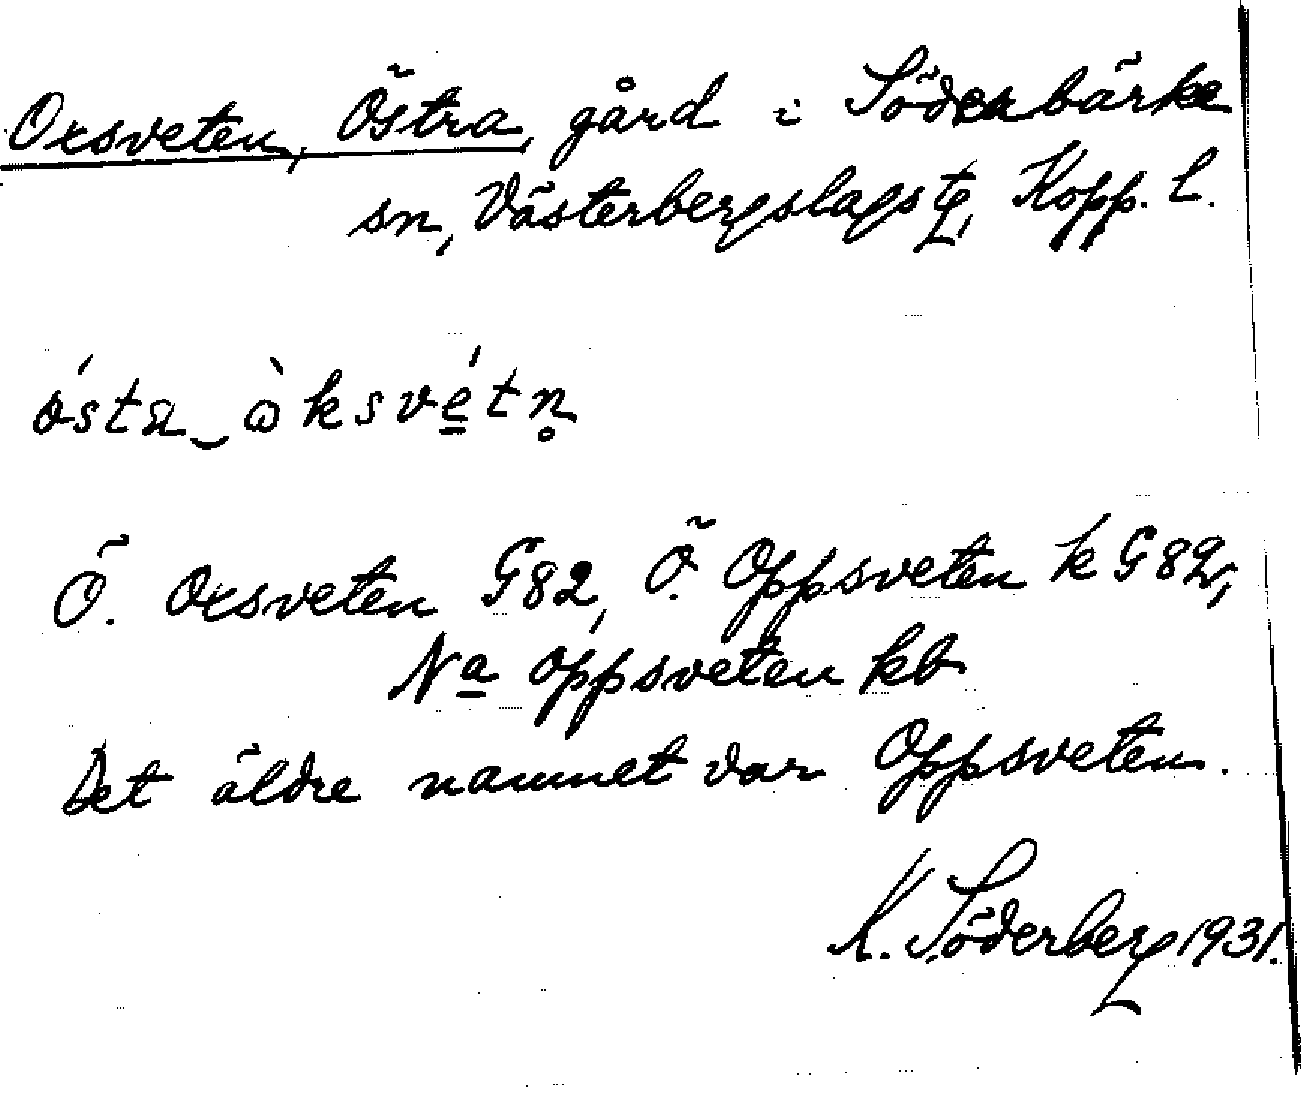 Oxsveten, Östra, gård i Söderbärke
sn, Västerbergslags tg, Kopp. l.
ö́sta‿ɷ̀ksvé̱tn̥
Ö. Oxsveten G82, Ö. Oppsveten k G82,
Na Oppsveten kb
Det äldre namnet var Oppsveten.
K. Söderberg 1931.